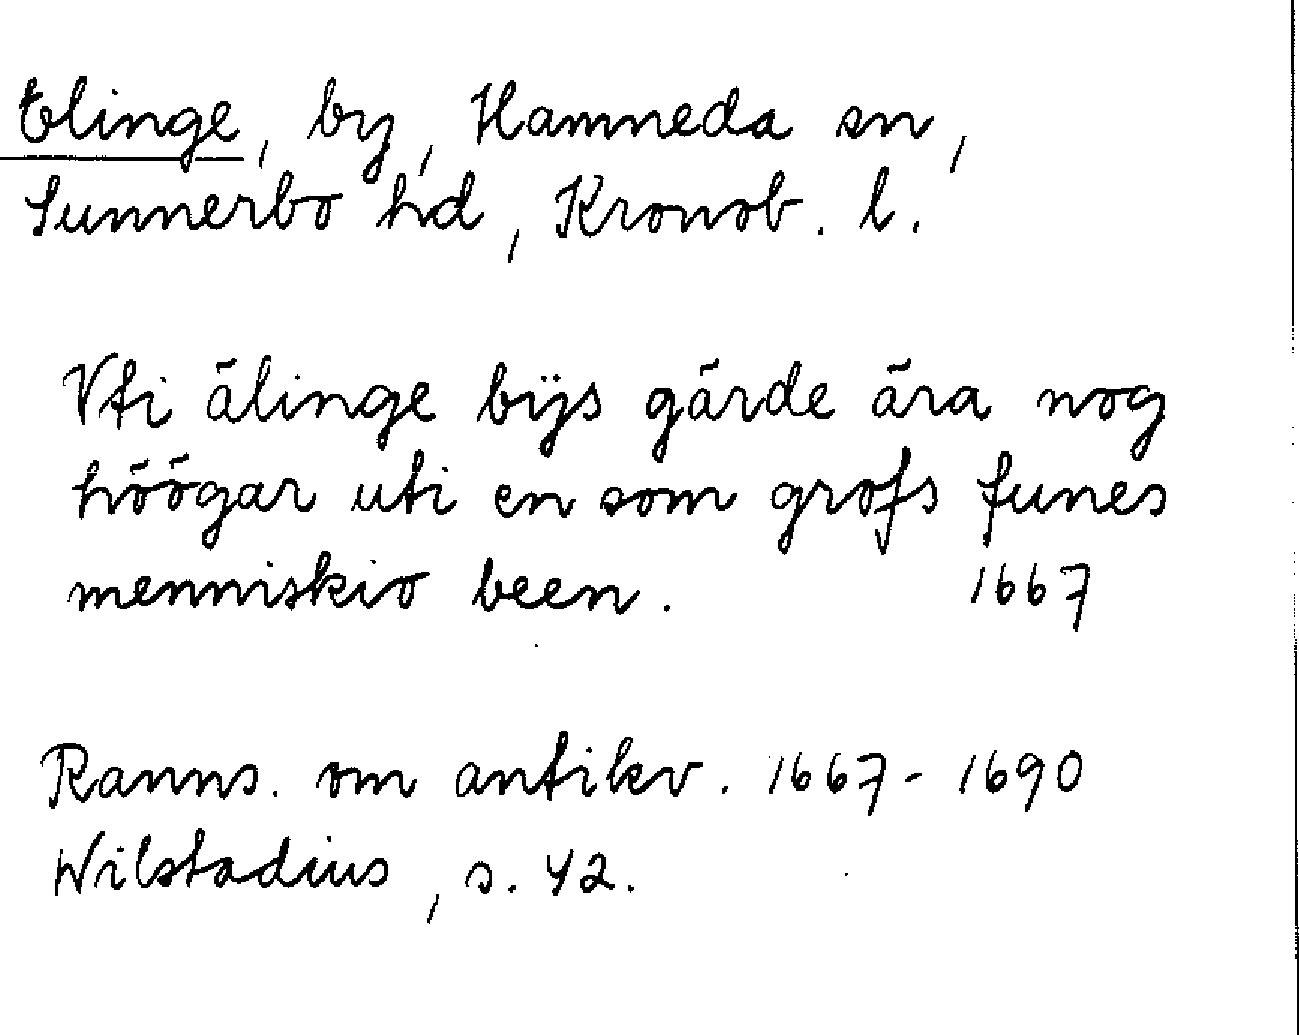 Elinge, by, Hamneda sn,
Sunnerbo hd, Kronob. l.
Vti älinge bÿs gärde ära nog
höögar uti en som grofs funes
menniskio been. 1667
Ranns. om antikv. 1667-1690
Wilstadius, s. 42.